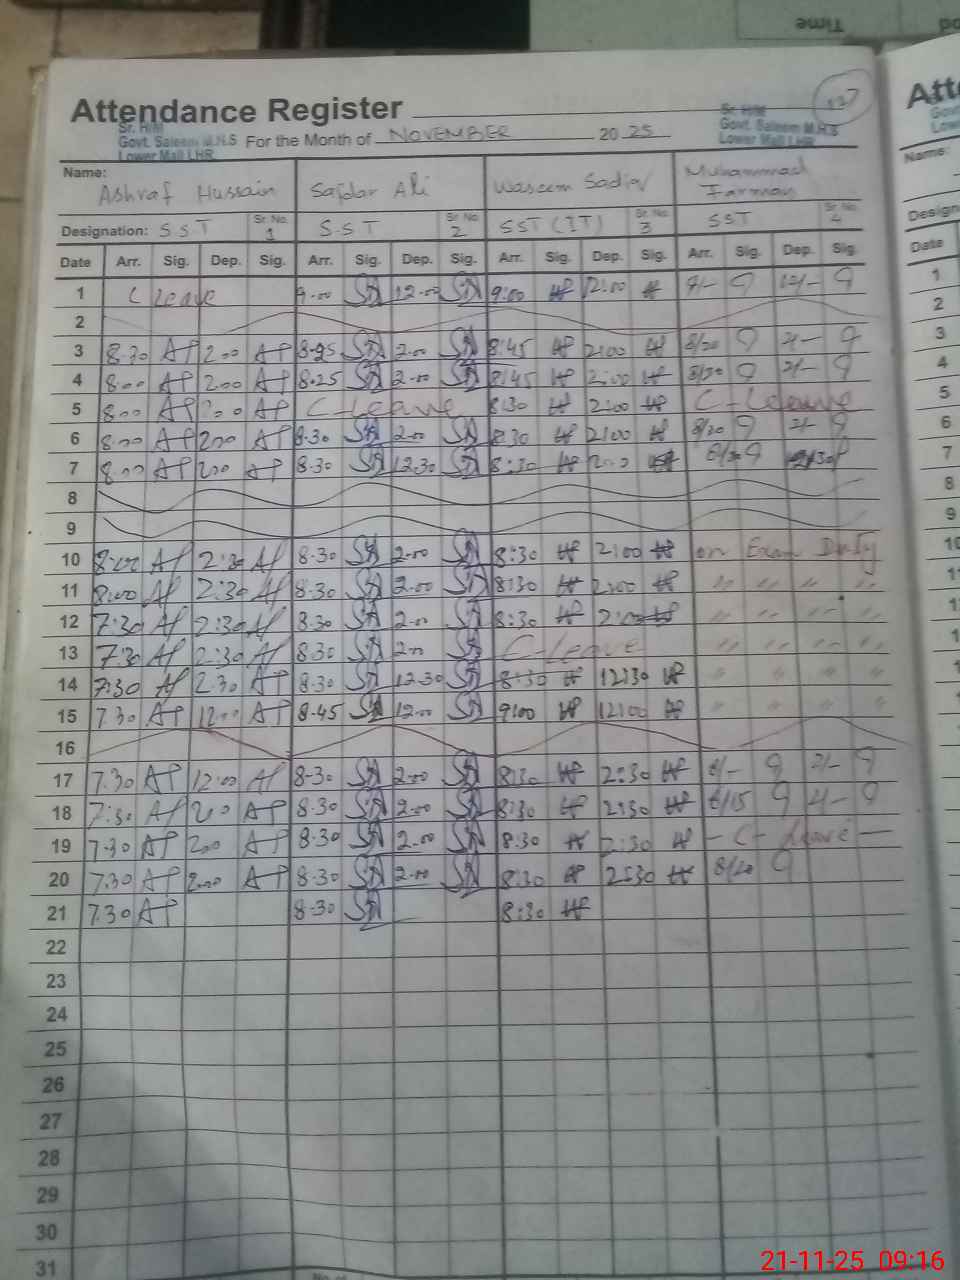 Time
Attendance Register
127
Sr. H/M
Govt. Saleem M.H.S
Lower Mall LHR
For the Month of NOVEMBER 2025
Sr. H/M
Govt. Saleem M.H.S
Lower Mall LHR
Name: Ashraf Hussain Safdar Ali Waseem Sadiq Muhammad Farman
Designation: S.S.T Sr. No. 1 S.S.T Sr. No. 2 SST (IT) Sr. No. 3 SST Sr. No. 4
Date Arr. Sig. Dep. Sig. Arr. Sig. Dep. Sig. Arr. Sig. Dep. Sig. Arr. Sig. Dep. Sig.
1 C Leave 9.00 12.00 9:00 12:00 9/- 12/-
2
3 8.30 AP 2.00 AP 8.25 2.00 8:45 2:00 8/20 2/-
4 8.00 AP 2.00 AP 8.25 2.00 8:45 2:00 8/20 2/-
5 8.00 AP 2.00 AP C-Leave 8:30 2:00 C-Leave
6 8.00 AP 2.00 AP 8.30 2.00 8:30 2:00 8/20 2/-
7 8.00 AP 2.00 AP 8.30 12.30 8:30
8
9
10 8:00 AP 2:30 AP 8.30 2.00 8:30 2:00 on Exam Duty
11 8:00 AP 2:30 AP 8.30 2.00 8:30 2:00 " " " "
12 7:30 AP 2:30 AP 8.30 2.00 8:30 2:00 " " " "
13 7:30 AP 2:30 AP 8.30 2.00 C-Leave " " " "
14 7:30 AP 2.30 AP 8.30 12.30 8:30 12:30 " " " "
15 7.30 AP 12.00 AP 8.45 12.00 9:00 12:00 " " " "
16
17 7.30 AP 12:00 AP 8.30 2.00 8:30 2:30 8/- 2/-
18 7:30 AP 2.00 AP 8.30 2.00 8:30 2:30 8/15 2/-
19 7.30 AP 2.00 AP 8.30 2.00 8:30 2:30 - C- Leave -
20 7.30 AP 2.00 AP 8.30 2.00 8:30 2:30 8/20
21 7.30 AP 8.30 8:30
22
23
24
25
26
27
28
29
30
31
21-11-25 09:16